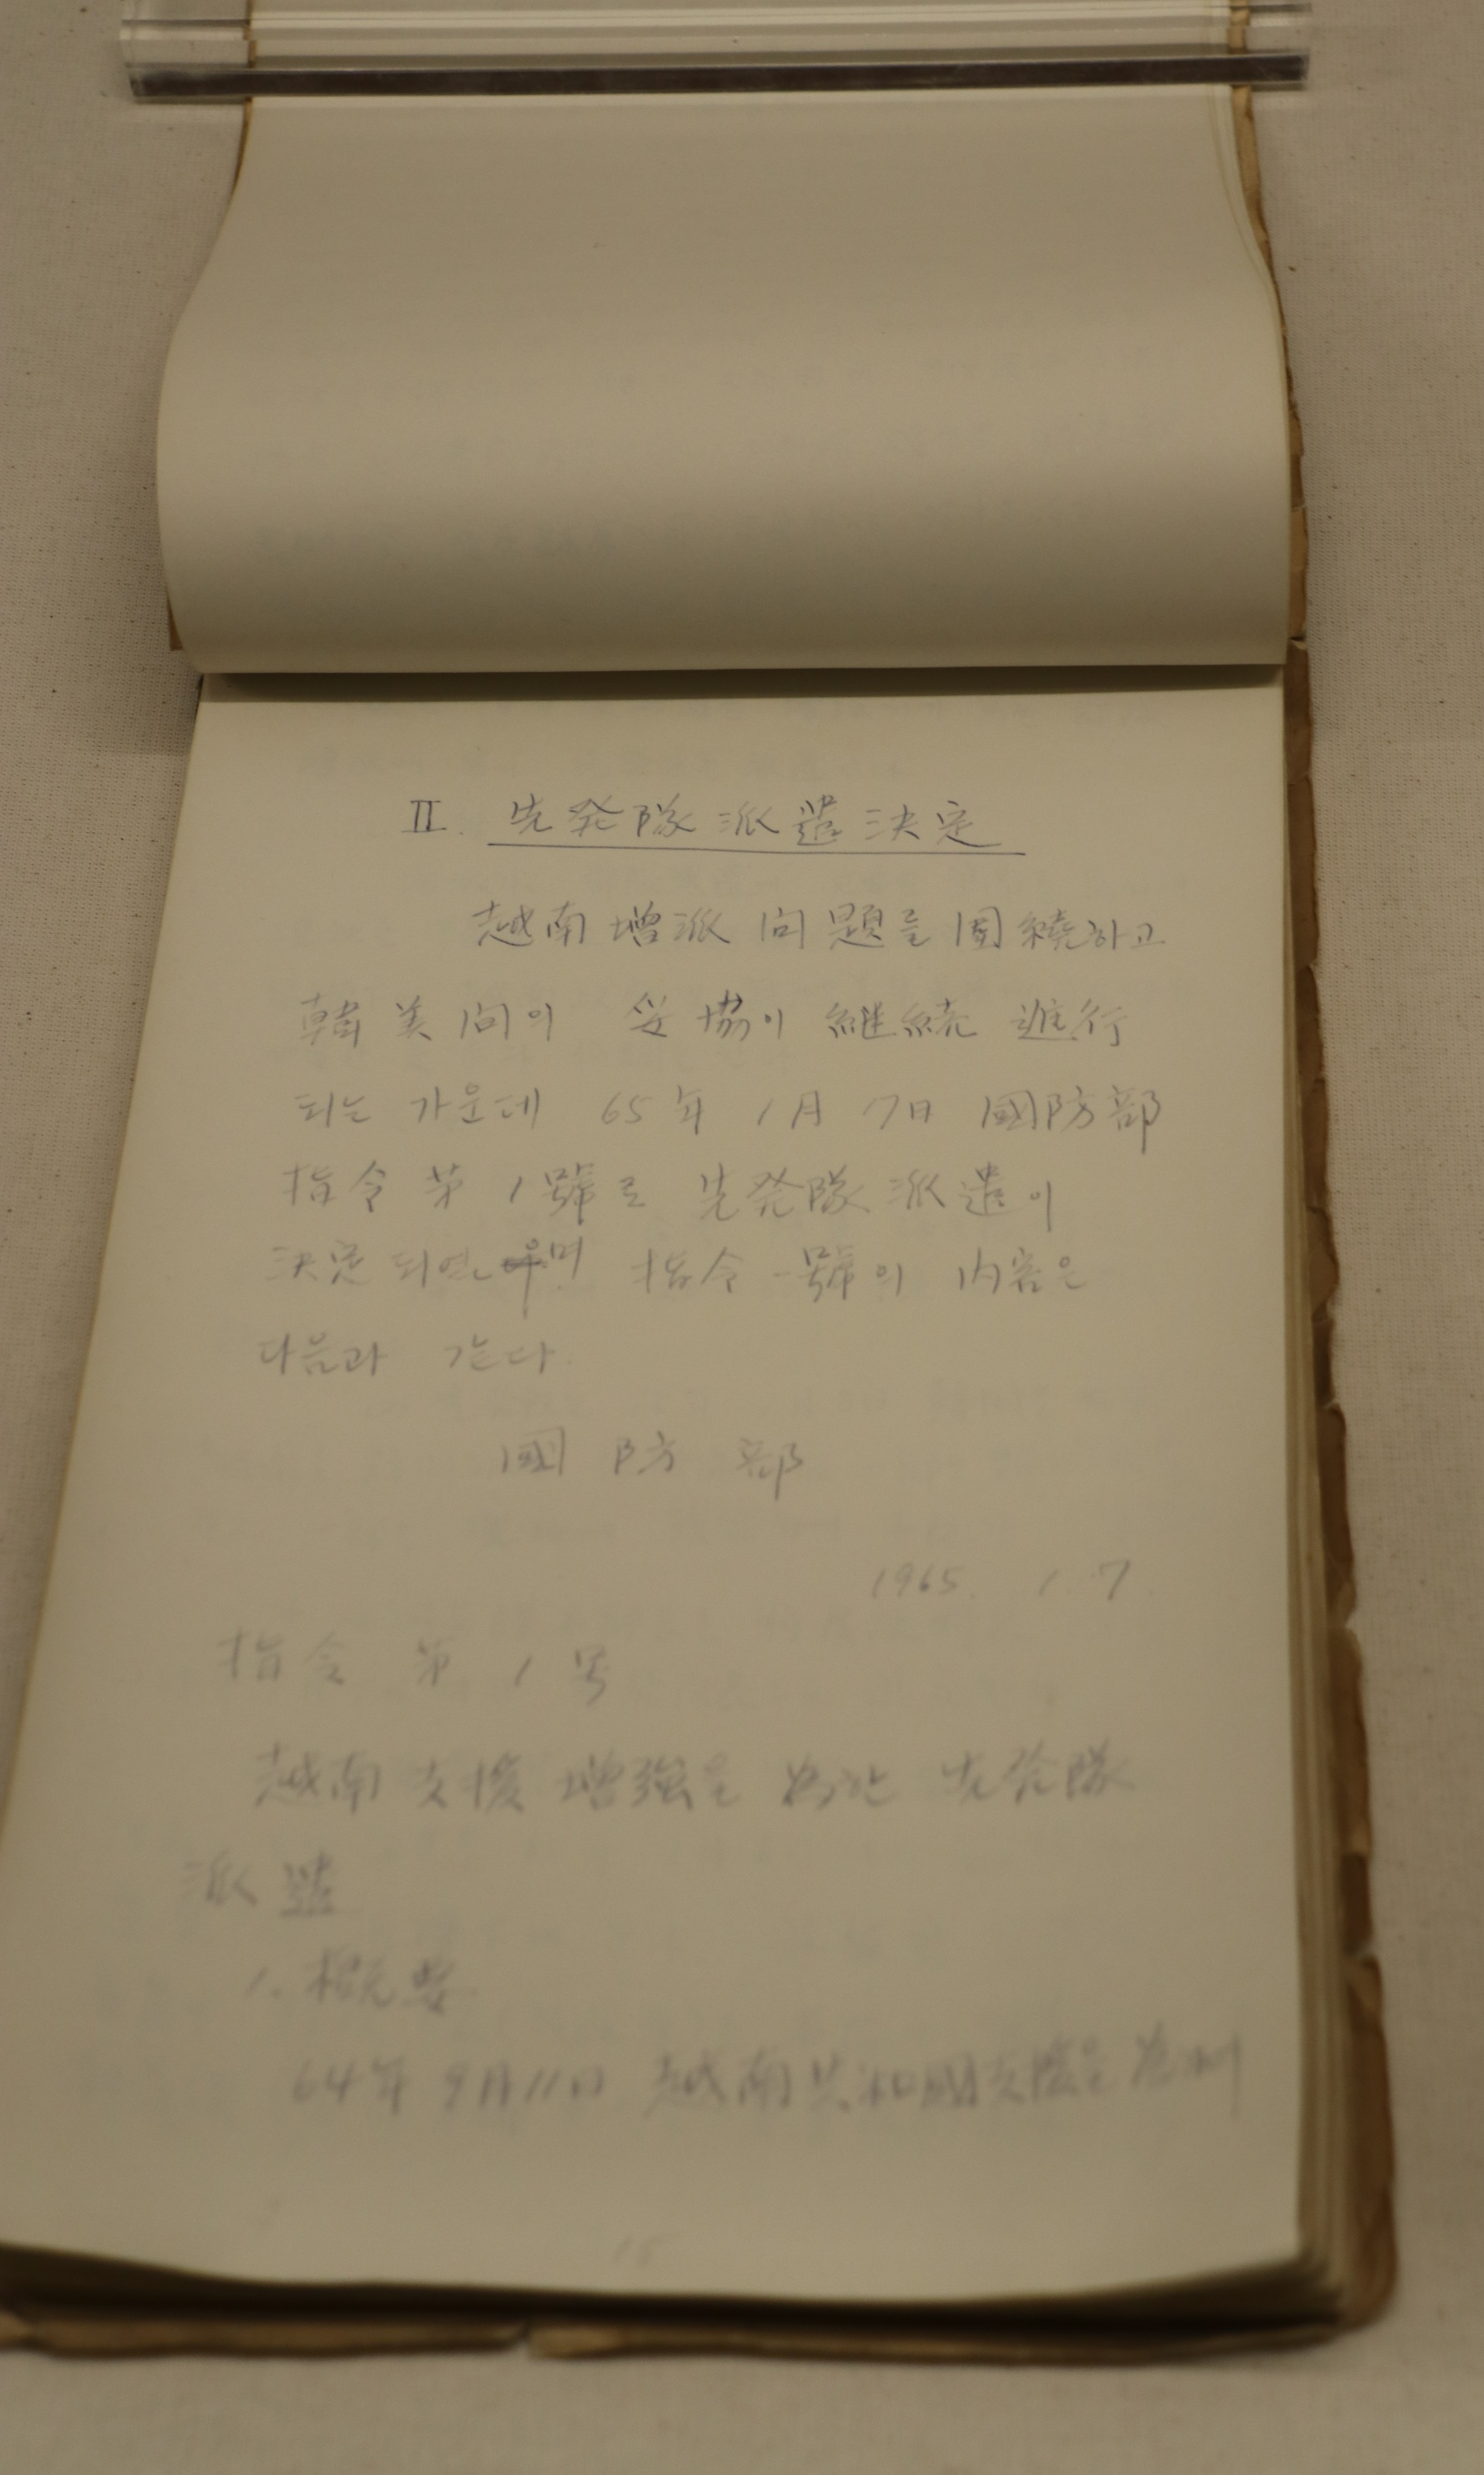 II. 先発隊 派遣 決定
越南 增派 問題를 圍繞하고
韓美間의 妥協이 継続 進行
되는 가운데 65年 1月 17日 國防部
指令 第 1號로 先発隊 派遣이
決定되었으며 指令 一號의 內容은
다음과 같다.
國防部
1965. 1. 7.
指令 第 1 号
越南 支援 增強을 爲한 先発隊
派遣
1. 概要
64年 9月 11日 越南共和國 支援을 爲해
15